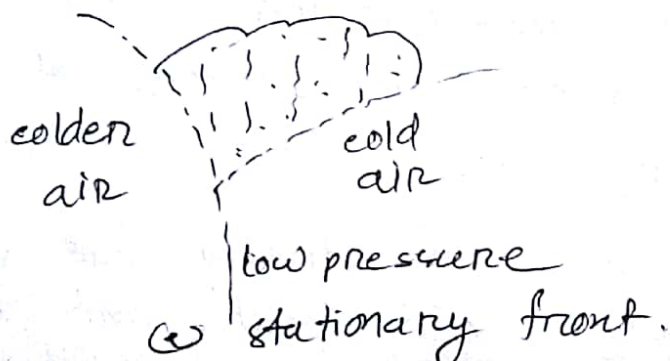 colder cold
air air
low pressure
stationary front.